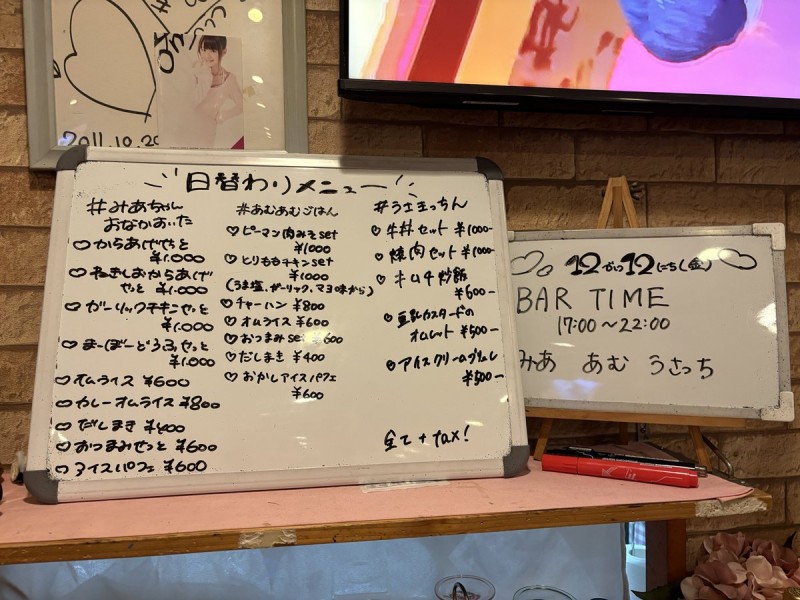 2011.10.20
日替わりメニュー
#みあちゃん
おなかあいた
♡からあげせっと
¥1.000
♡ねぎしおからあげ
せっと ¥1.000
♡ガーリックチキンせっと
¥1.000
♡まーぼーどうふせっと
¥1.000
♡オムライス ¥600
♡カレーオムライス ¥800
♡だしまき ¥400
♡おつまみせっと ¥600
♡アイスパフェ ¥600
#あむあむごはん
♡ピーマン肉みそset
¥1000
♡とりももチキンset
¥1000
(うま塩、ガーリック、マヨ味から)
♡チャーハン ¥800
♡オムライス ¥600
♡おつまみset ¥600
♡だしまき ¥400
♡おかしアイスパフェ
¥600
♡牛丼セット ¥1000-
♡焼肉セット ¥1000-
♡キムチ炒飯
¥600-
♡豆乳カスタードの
オムレット ¥500-
♡アイスクリームブリュレ
¥500-
全て + tax!
12がつ12にち(金)
BAR TIME
17:00〜22:00
みあ あむ うさっち